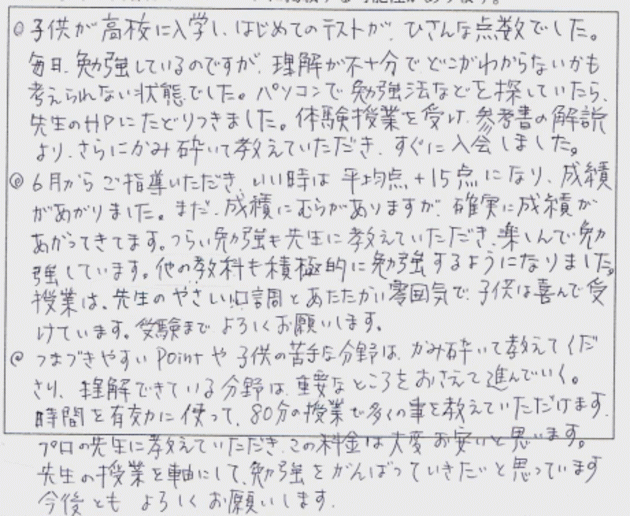 ◎子供が高校に入学し、はじめてのテストが、ひさんな点数でした。
毎日、勉強しているのですが、理解が不十分でどこがわからないかも
考えられない状態でした。パソコンで勉強法などを探していたら、
先生のHPにたどりつきました。体験授業を受け、参考書の解説
より、さらにかみ砕いて教えていただき、すぐに入会しました。
◎6月からご指導いただき、いい時は平均点+15点になり、成績
があがりました。まだ、成績にむらがありますが、確実に成績が
あがってきてます。つらい勉強も先生に教えていただき、楽しんで勉
強しています。他の教科も積極的に勉強するようになりました。
授業は、先生のやさしい口調とあたたかい雰囲気で、子供は喜んで受
けています。受験までよろしくお願いします。
◎つまづきやすいPointや子供の苦手な分野は、かみ砕いて教えてくだ
さり、理解できている分野は、重要なところをおさえて進んでいく。
時間を有効に使って、80分の授業で多くの事を教えていただけます。
プロの先生に教えていただき、この料金は大変お安いと思います。
先生の授業を軸にして、勉強をがんばっていきたいと思っています
今後ともよろしくお願いします。